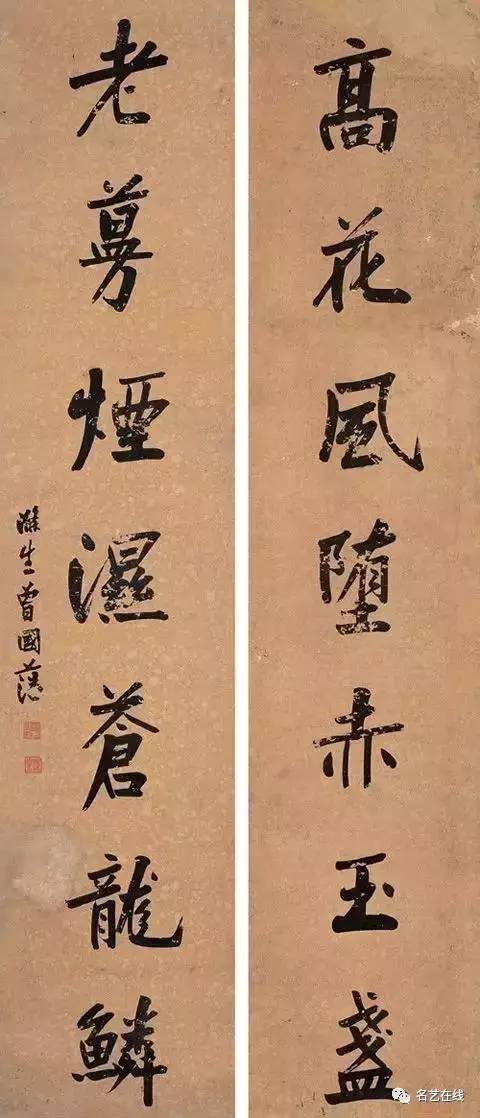 髙花風堕赤玉盞
老蔓煙濕蒼龍鱗
滌生曾國藩
名艺在线